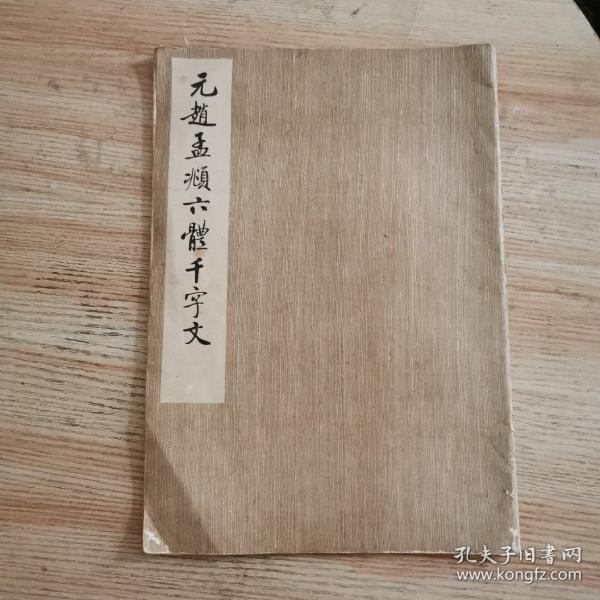 元趙孟頫六體千字文
孔夫子旧書网
www.kongfz.com